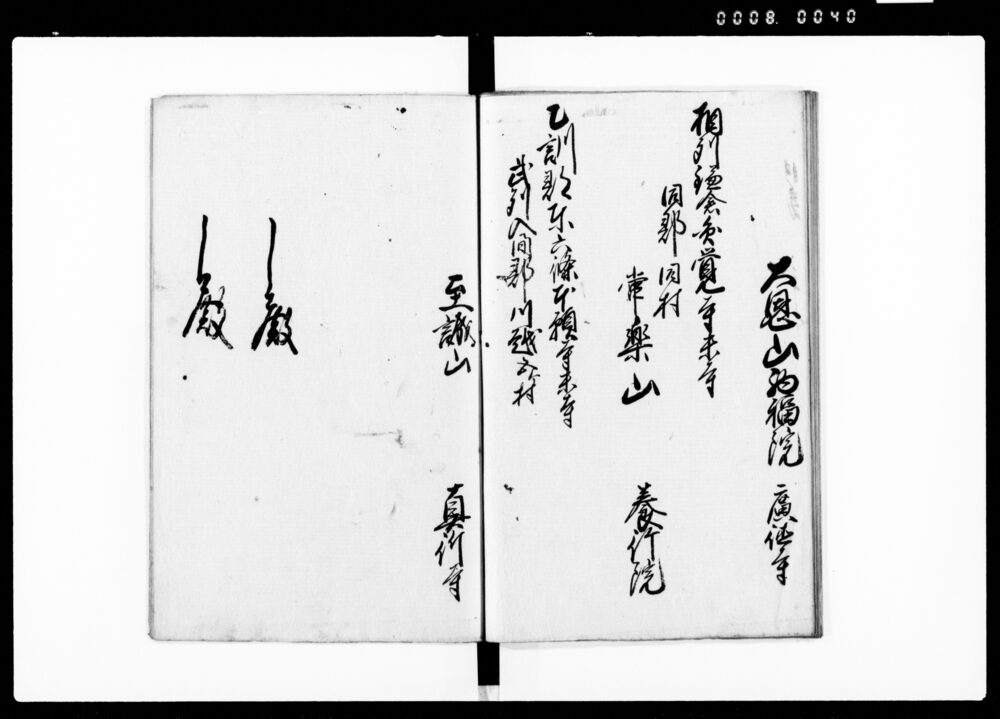 0008.0040
大恩山的福院 廣徳寺
相列鎌倉圓覚寺末寺
同郡同村
常楽山 養竹院
乙訓郡東六條本願寺末寺
武列入間郡川越 村
至誠山 真行寺
殿
殿